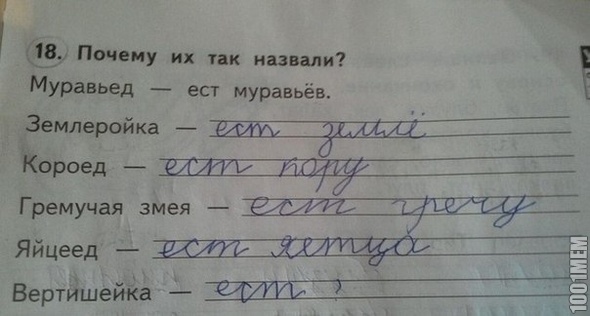 18. Почему их так назвали?
Муравьед — ест муравьёв.
Землеройка — ест землё
Короед — ест кору
Гремучая змея — ест гречу
Яйцеед — ест яетца
Вертишейка — ест ?
100 IMEM